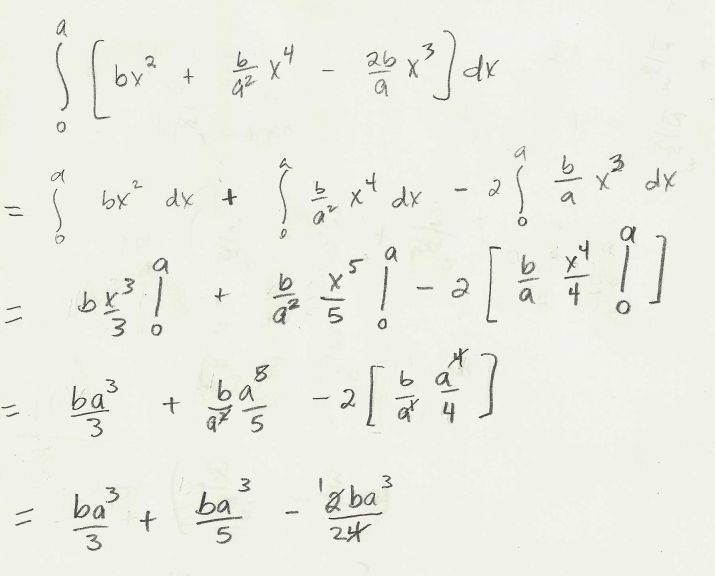 ∫₀ᵃ [bx² + b/a² x⁴ − 2b/a x³] dx
= ∫₀ᵃ bx² dx + ∫₀ᵃ b/a² x⁴ dx − 2 ∫₀ᵃ b/a x³ dx
= b x³/3 |₀ᵃ + b/a² x⁵/5 |₀ᵃ − 2 [b/a x⁴/4 |₀ᵃ]
= ba³/3 + b/a² a⁵/5 − 2 [b/a a⁴/4]
= ba³/3 + ba³/5 − ¹2ba³/24